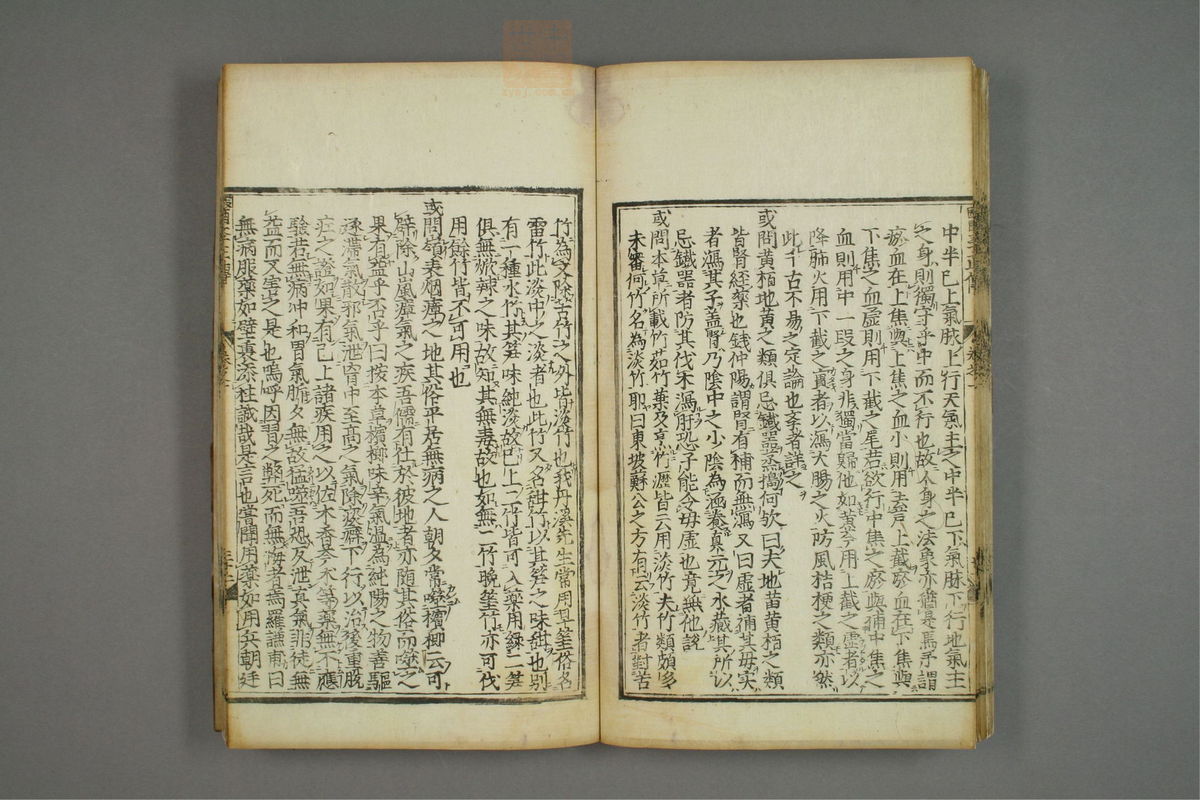 中半已上氣脉上行天氣主之中半已下氣脉下行地氣主
之身則獨守乎中而不行也故人身之法象亦猶是焉予謂
瘀血在上焦與上焦之血小則用蓋尸上截瘀血在下焦與
下焦之血虛則用下截之尾若欲行中焦之瘀與補中焦之
血則用中一段之身非獨當歸他如黃芩用上截之虛者以
降肺火用下截之實者以瀉大腸之火防風桔梗之類亦然
此千古不易之定論也奈者詳之
或問黃栢地黃之類俱忌鐵器蒸搗何欤曰夫地苗黃栢之類
皆腎經藥也錢仲陽謂腎有補而無瀉又曰虛者補其母实
者瀉其子盖腎乃陰中之少陰為涵養真元之水藏其所以
忌鐵器者防其伐木瀉肝恐子能令母虛也竟無他說
或問本草所載竹茹竹葉及烹竹瀝皆云用淡竹夫竹類頗多
未審何竹名為淡竹耶曰東坡蘇公之方有云淡竹者對苦
竹為文除苦竹之外皆淡竹也我丹溪先生常用旱筀俗名
雷竹此淡中之淡者也此竹又名甜竹以其笋之味甜也别
有一種水竹其笋味純淡故已上二竹皆可入藥用緣二笋
俱無蘝辣之味故知其無毒故也如無二竹晚筀竹亦可伐
用餘竹皆不可用也
或問嶺表烟瘴之地其俗平居無病之人朝夕常噉檳榔云可
辟除山嵐瘴氣之疾吾儒有仕於彼地者亦随其俗而噉之
果有益乎否乎曰按本草檳榔味辛氣溫為純陽之物善驅
逐滯氣散邪氣泄胷中至高之氣除痰癖下行以治後重脫
疘之證如果有已上諸疾用之以佐木香芩朮等藥無不應
驗若無病冲和胃氣脆夕無故猛噉吾恐反泄真氣非徒無
益而又害之是也嗚呼因習之弊死而無悔者焉羅謙甫曰
無病服藥如壁裏添柱誠哉是言也嘗聞用藥如用兵朝廷